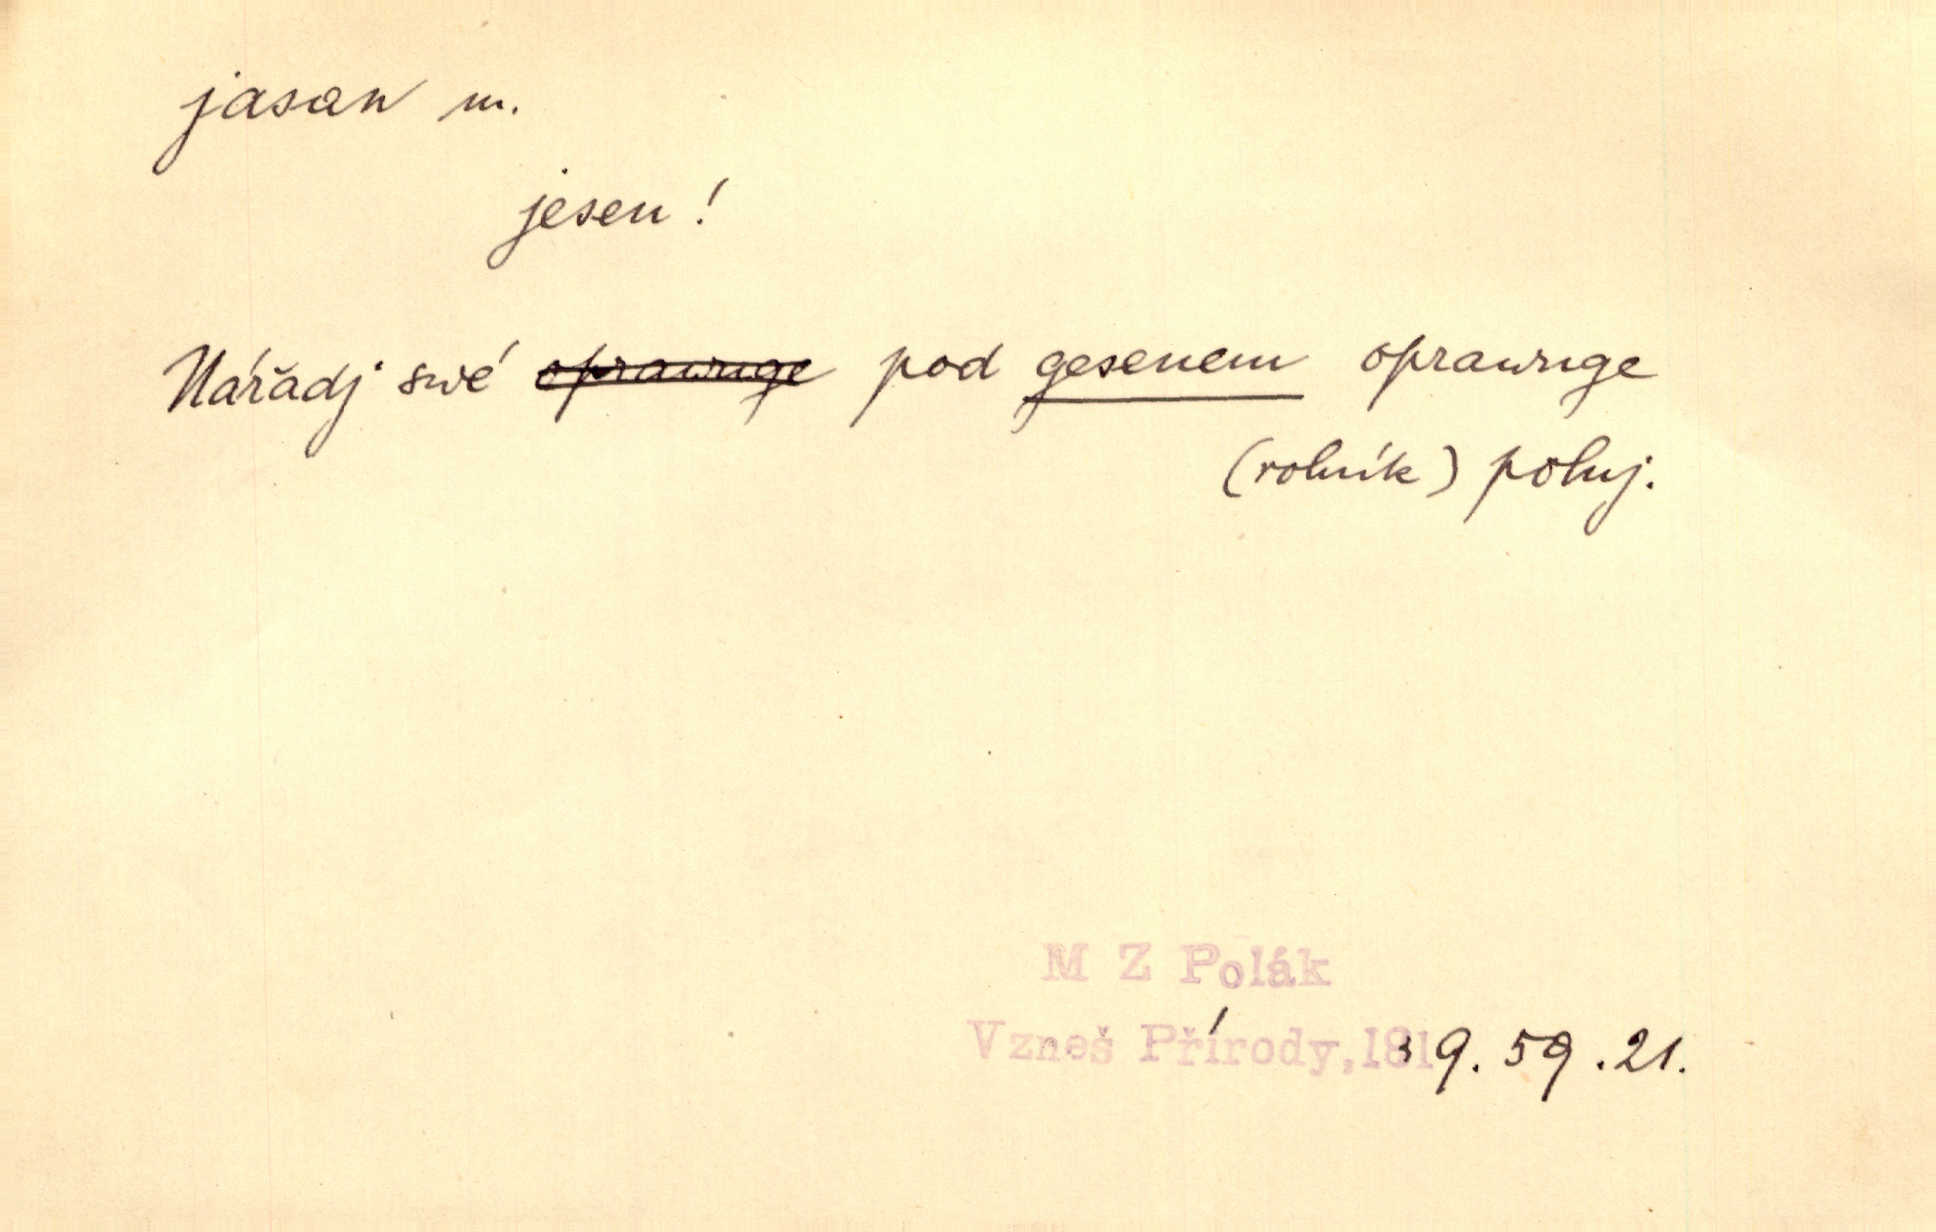 jasan m.
jesen!
Nářadj swé oprawuge pod gesenem oprawuge
(rolník) polnj.
M Z Polák
Vzneš Přírody, 1819. 59. 21.